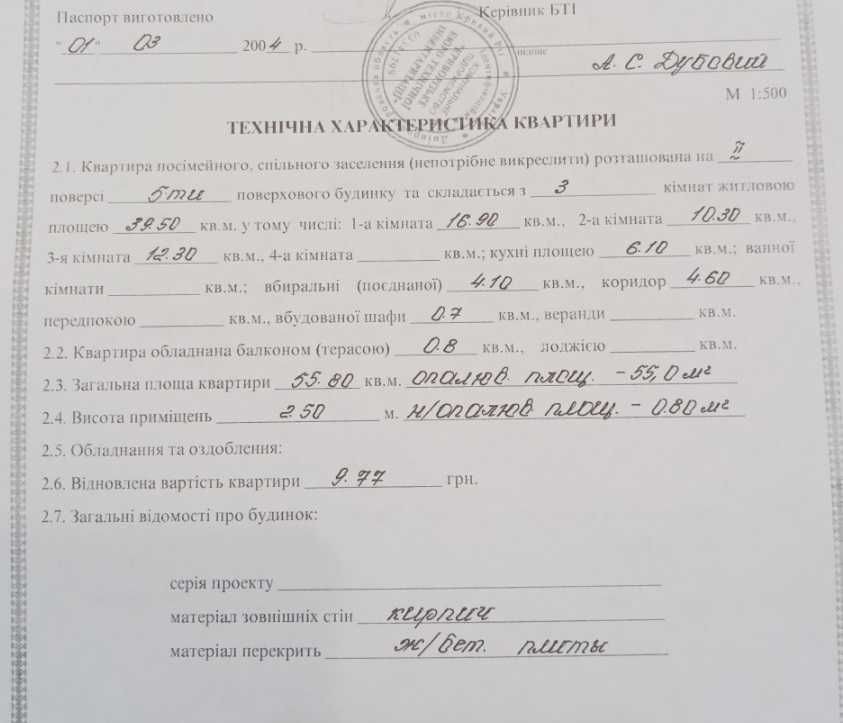 Паспорт виготовлено
Керівник БТІ
"01" 03 2004 р.
А. С. Дубовий
М 1:500
ТЕХНІЧНА ХАРАКТЕРИСТИКА КВАРТИРИ
2.1. Квартира посімейного, спільного заселення (непотрібне викреслити) розташована на II
поверсі 5ти поверхового будинку та складається з 3 кімнат житловою
площею 39.50 кв.м. у тому числі: 1-а кімната 16.90 кв.м., 2-а кімната 10.30 кв.м.,
3-я кімната 12.30 кв.м., 4-а кімната кв.м.; кухні площею 6.10 кв.м.; ванної
кімнати кв.м.; вбиральні (поєднаної) 4.10 кв.м., коридор 4.60 кв.м.,
передпокою кв.м., вбудованої шафи 0.7 кв.м., веранди кв.м.
2.2. Квартира обладнана балконом (терасою) 0.8 кв.м., лоджією кв.м.
2.3. Загальна площа квартири 55.80 кв.м. опалюв. площ. - 55,0 м²
2.4. Висота приміщень 2.50 м. н/опалюв. площ. - 0.80 м²
2.5. Обладнання та оздоблення:
2.6. Відновлена вартість квартири 9.77 грн.
2.7. Загальні відомості про будинок:
серія проекту
матеріал зовнішніх стін кирпич
матеріал перекрить ж/бет. плиты